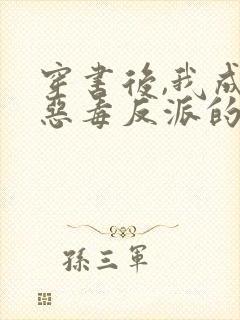 穿書後,我成
惡毒反派的
孫三軍